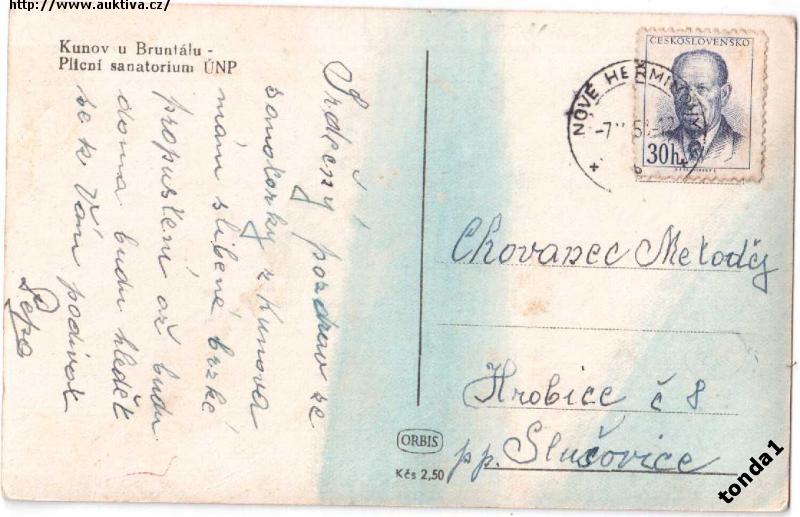 http://www.auktiva.cz/
Kunov u Bruntálu -
Plicní sanatorium ÚNP
Srdečný pozdrav ze
sanatorky z Kunova
mám slíbené brzké
propuštění až budu
doma budu hledět
se k Vám podívat
Pepa
ČESKOSLOVENSKO
30h
NOVÉ HEŘMINOVY
Chovanec Metoděj
Hrobice č 8
pp. Slušovice
ORBIS
Kčs 2,50
tonda1